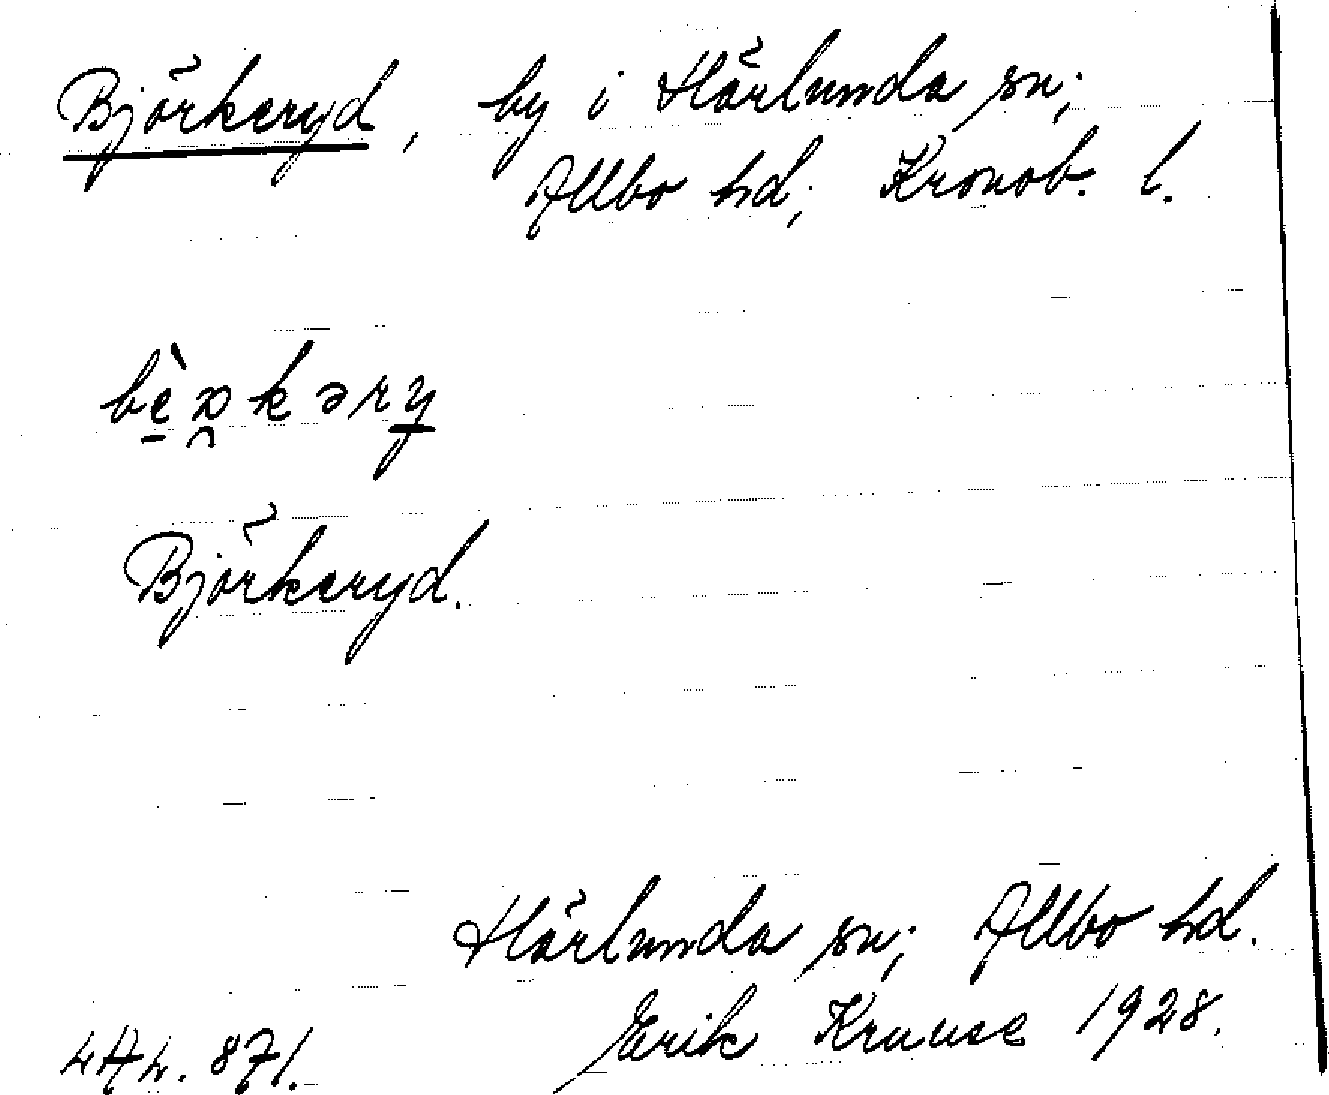 Björkeryd, by i Härlunda sn;
Allbo hd; Kronob. l.
Björkeryd.
Härlunda sn; Allbo hd.
Erik Krause 1928.
871.